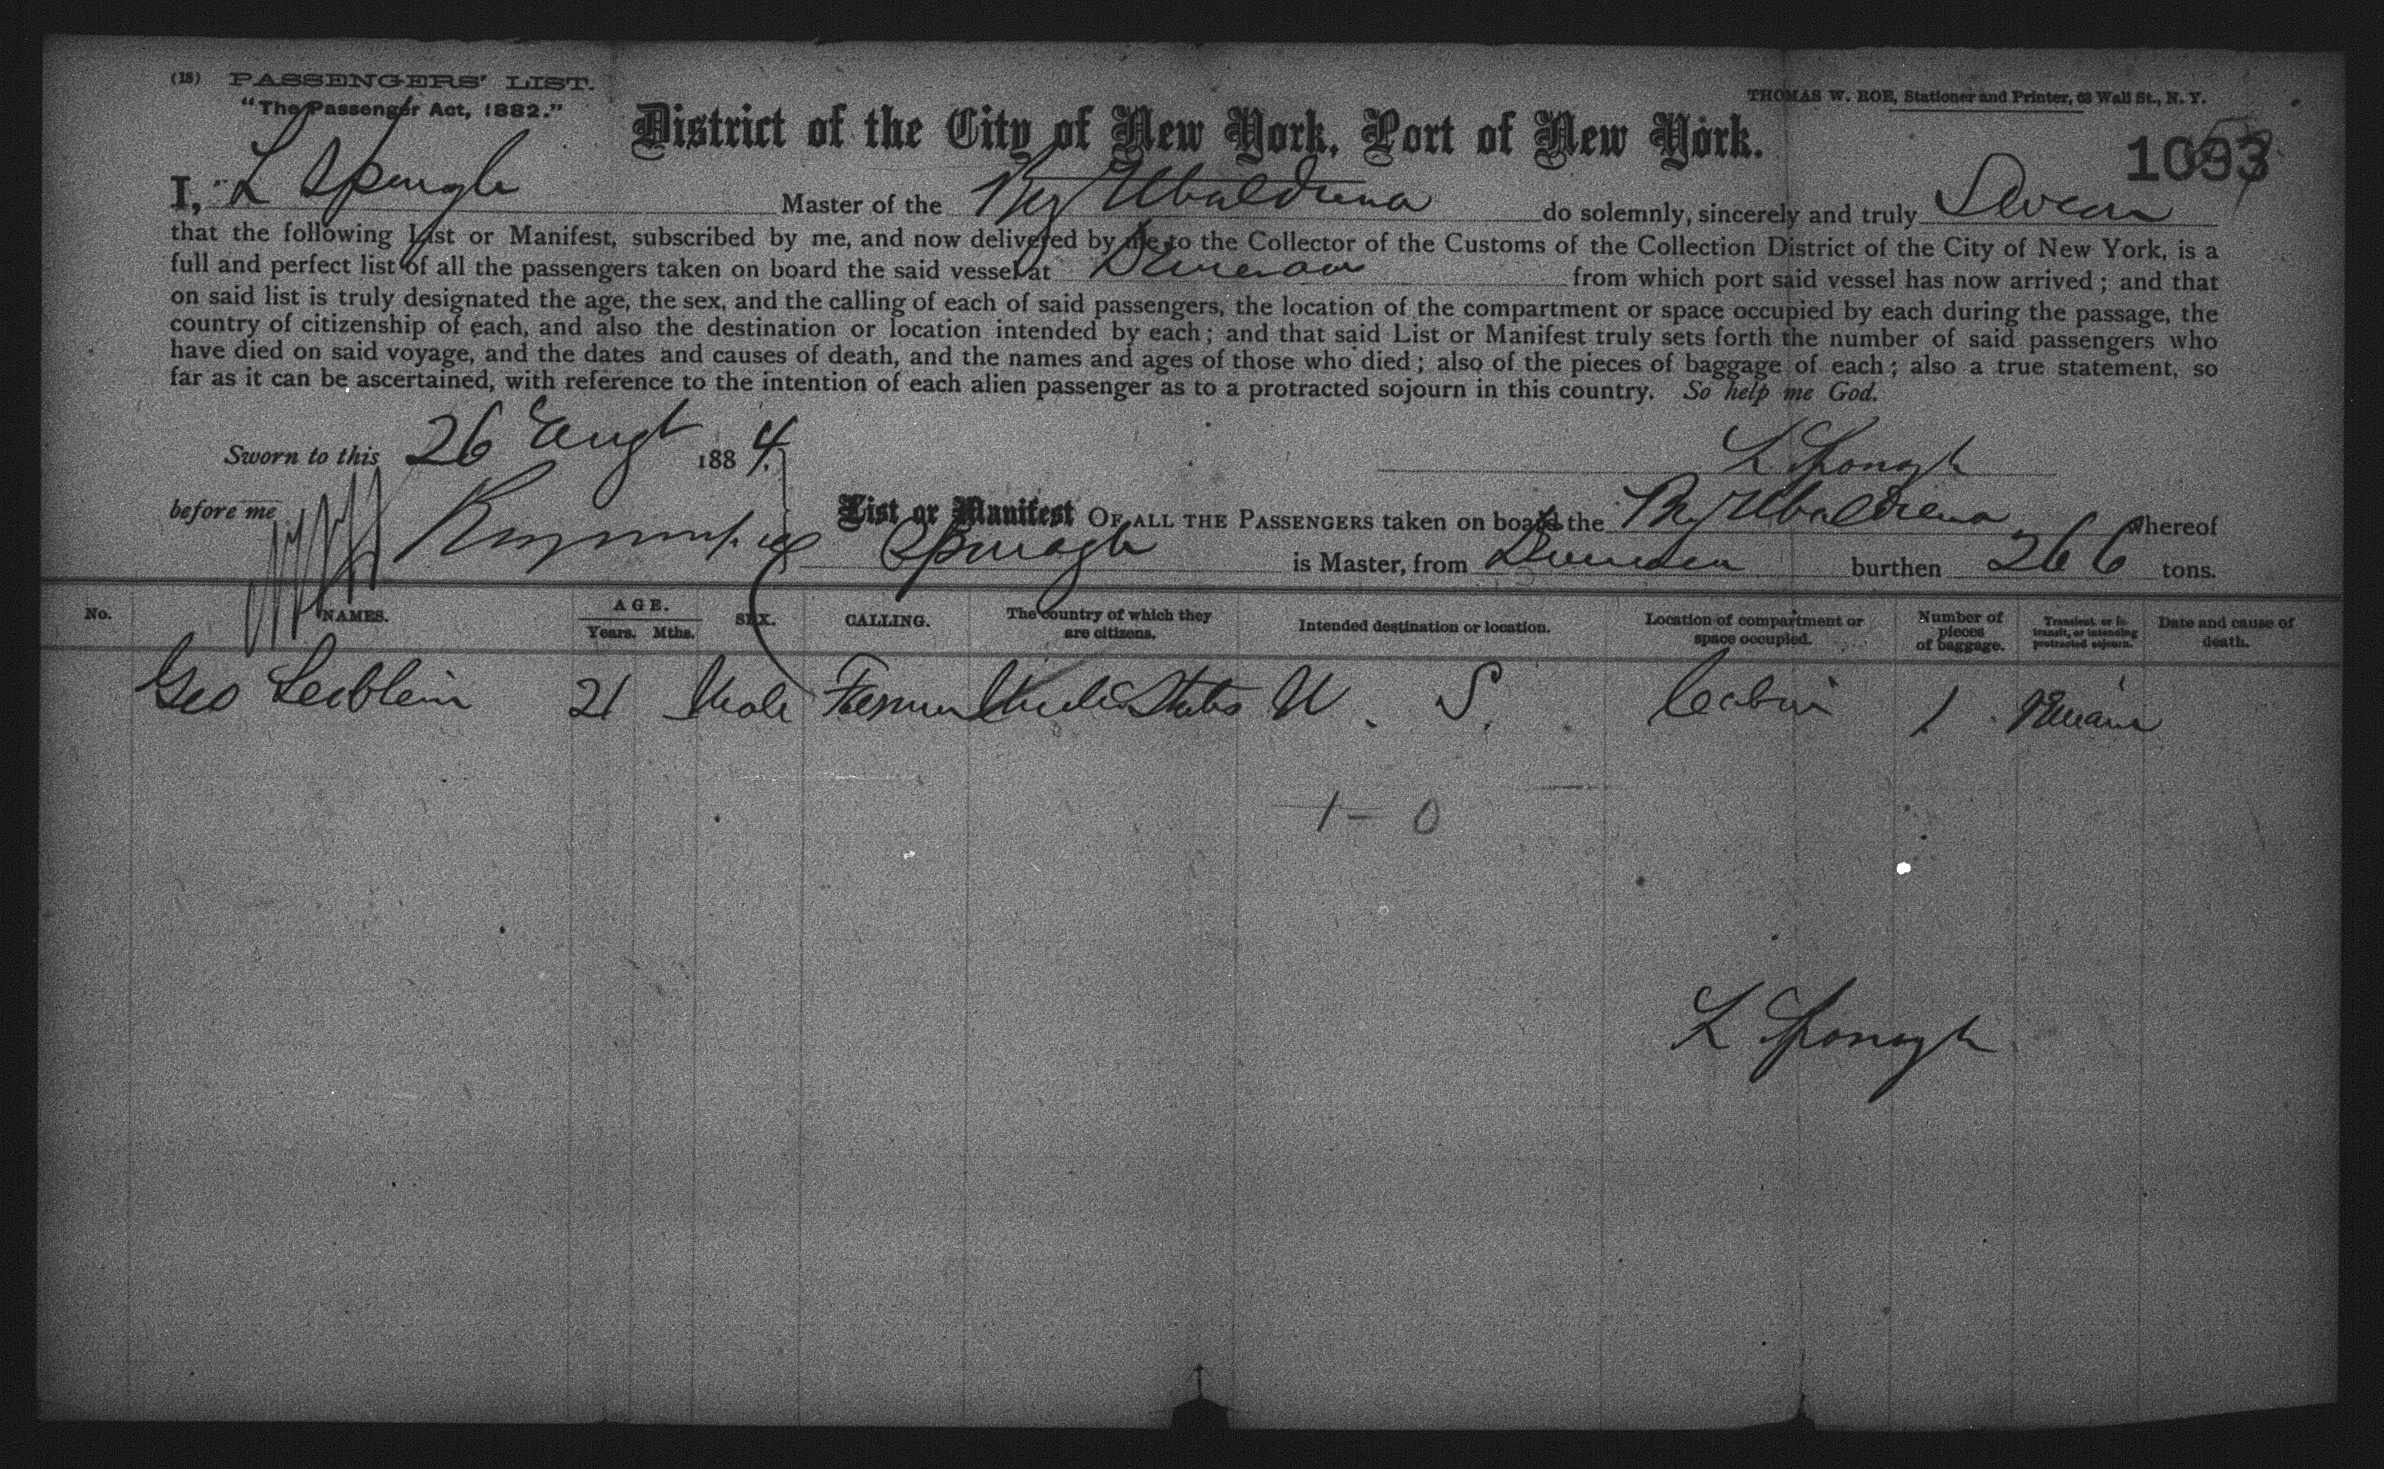 (18) PASSENGERS' LIST.
"The Passenger Act, 1882."
THOMAS W. ROE, Stationer and Printer, 63 Wall St., N. Y.
District of the City of New York, Port of New York.
I, L Master of the do solemnly, sincerely and truly Swear
that the following List or Manifest, subscribed by me, and now delivered by me to the Collector of the Customs of the Collection District of the City of New York, is a
full and perfect list of all the passengers taken on board the said vessel at from which port said vessel has now arrived; and that
on said list is truly designated the age, the sex, and the calling of each of said passengers, the location of the compartment or space occupied by each during the passage, the
country of citizenship of each, and also the destination or location intended by each; and that said List or Manifest truly sets forth the number of said passengers who
have died on said voyage, and the dates and causes of death, and the names and ages of those who died; also of the pieces of baggage of each; also a true statement, so
far as it can be ascertained, with reference to the intention of each alien passenger as to a protracted sojourn in this country. So help me God.
Sworn to this 26 Augt 1884.
L Sponagle
before me
List or Manifest OF ALL THE PASSENGERS taken on board the whereof
is Master, from burthen 266 tons.
No. NAMES. AGE. Years. Mths. SEX. CALLING. The country of which they are citizens. Intended destination or location. Location of compartment or space occupied. Number of pieces of baggage. Transient, or in transit, or intending protracted sojourn. Date and cause of death.
Geo Leiblein 21 Male Farmer United States U. S. Cabin 1 Remain
1 - 0
L Sponagle